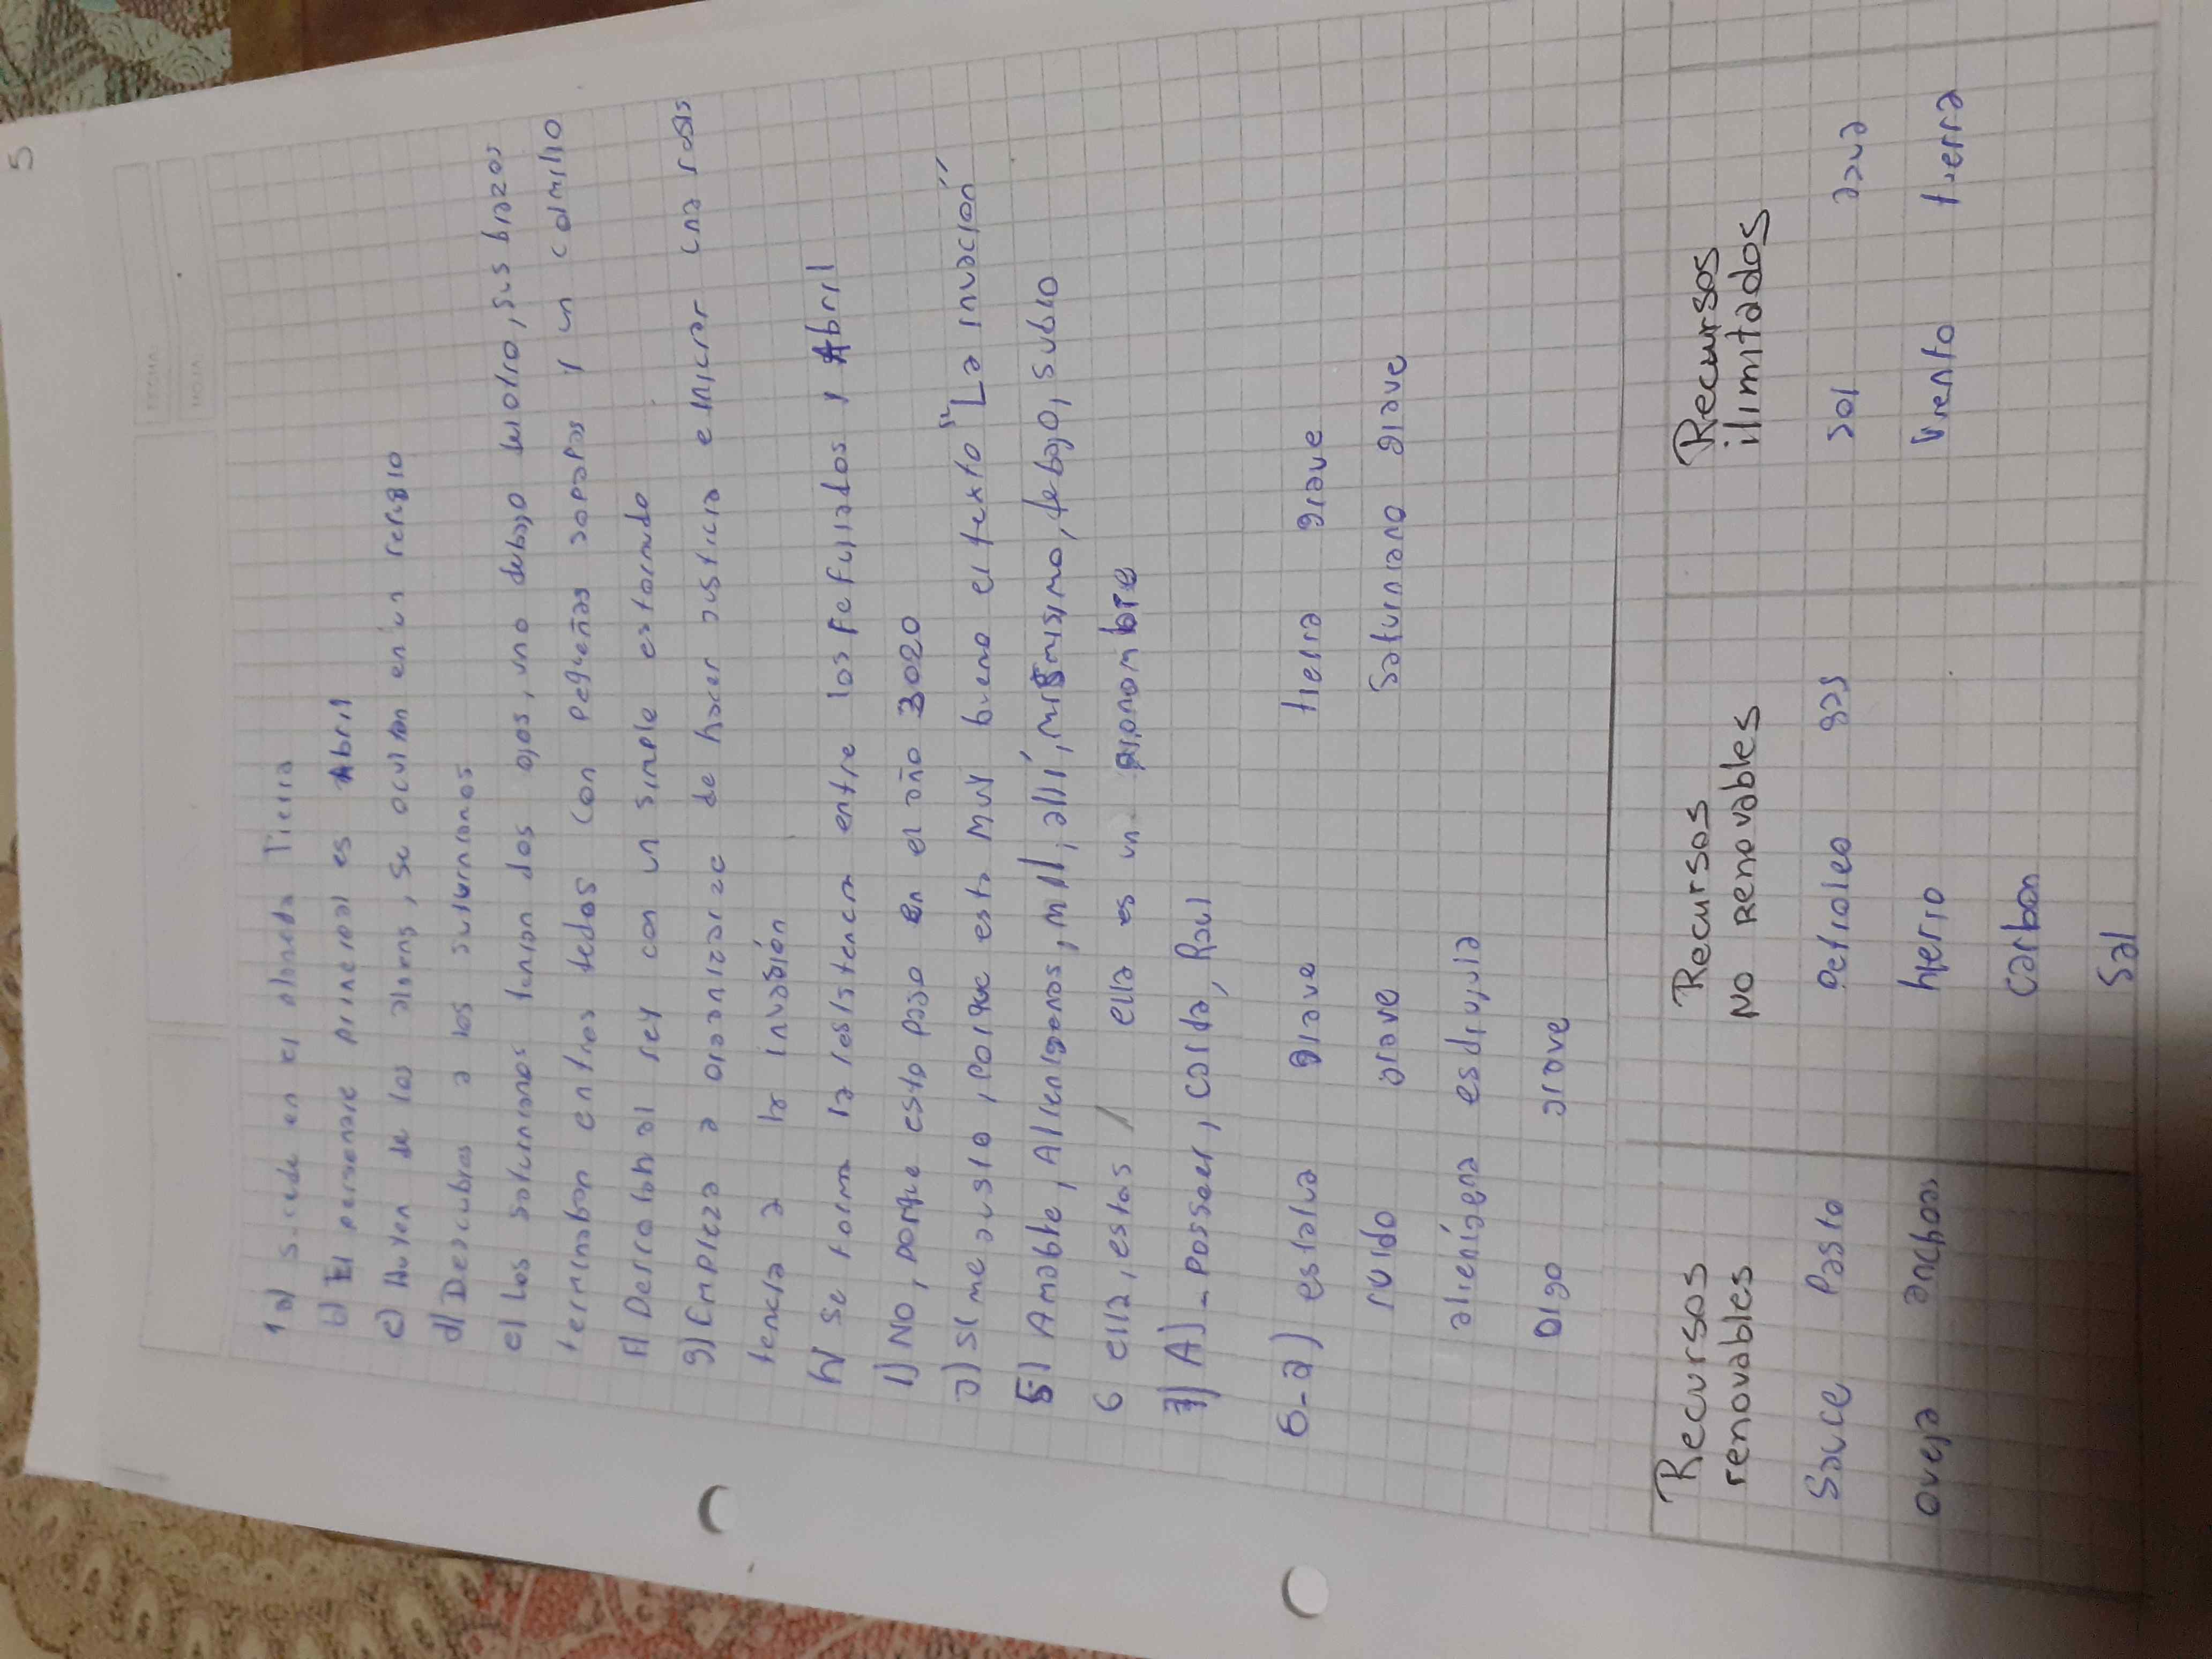 5
FECHA:
HOJA:
1 a) sucede en el planeta Tierra
b) El personaje principal es Abril
c) Huyen de los aliens, se ocultan en un refugio
d) Descubres a los saturnianos
e) Los saturnianos tenian dos ojos, uno debajo del otro, sus brazos
terminaban en tedas con pequeñas y un colmillo
f) Derrotabn al rey con un simple estornudo
g) Empieza a organizarze de hacer justicia e iniciar una resis
tencia a la invasión
h) Se forma la resistencia entre los Fefuljados y Abril
i) No, porque esto paso en el año 3020
j) si me gusto, porque esta muy bueno el texto "La invación"
5) Amable, Alienígenas, mil, allí, mismisimo, debajo, subio
6 ella, estas / ella es un pronombre
7) A) - Possael, Carla, Raul
6-a) estatua grave tierra grave
ruido grave Saturniano grave
alienígena esdrujula
Olgo grave
Recursos renovables Recursos No renovables Recursos ilimitados
Sauce Pasto Petroleo gas sol agua
oveja anchoas hierro Viento tierra
carbon
Sal